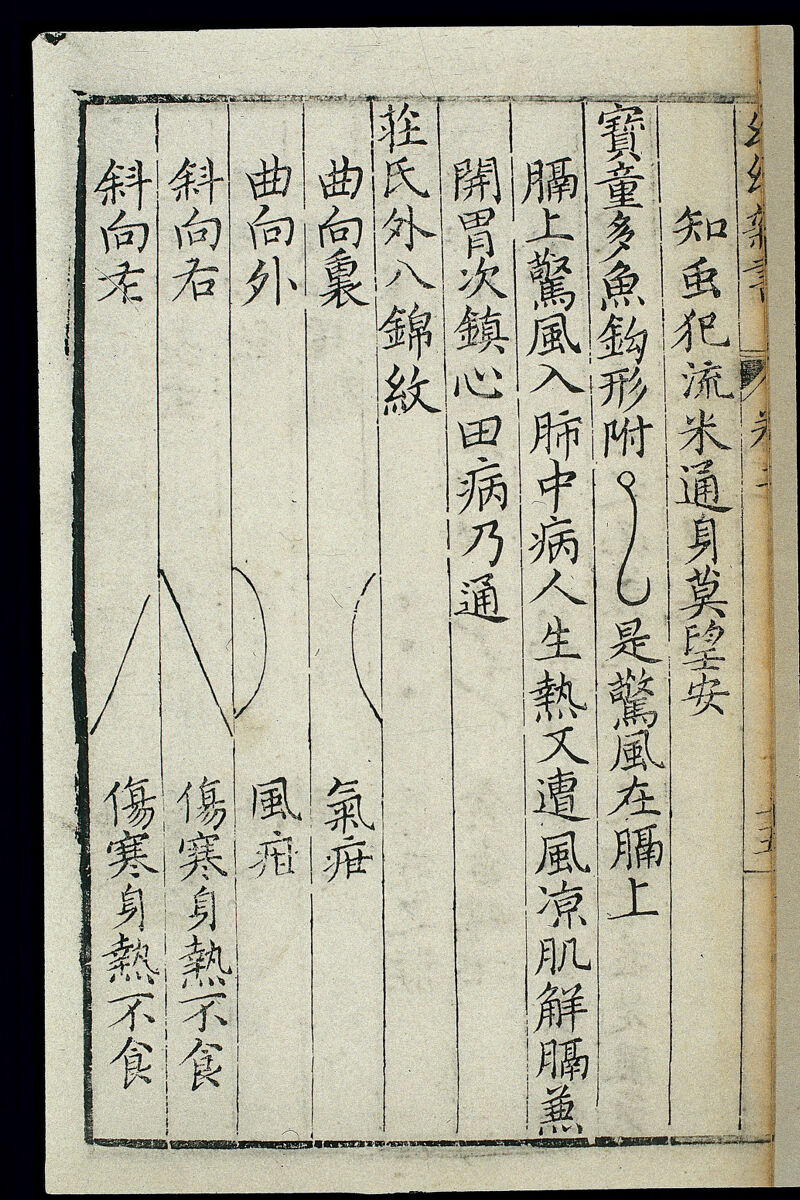 知虫犯流米通身莫望安
寶童多魚鈎形附 是驚風在膈上
膈上驚風入肺中病人生熱又遭風凉肌解膈兼
開胃次鎮心田病乃通
莊氏外八錦紋
曲向裏 氣疳
曲向外 風疳
斜向右 傷寒身熱不食
斜向左 傷寒身熱不食